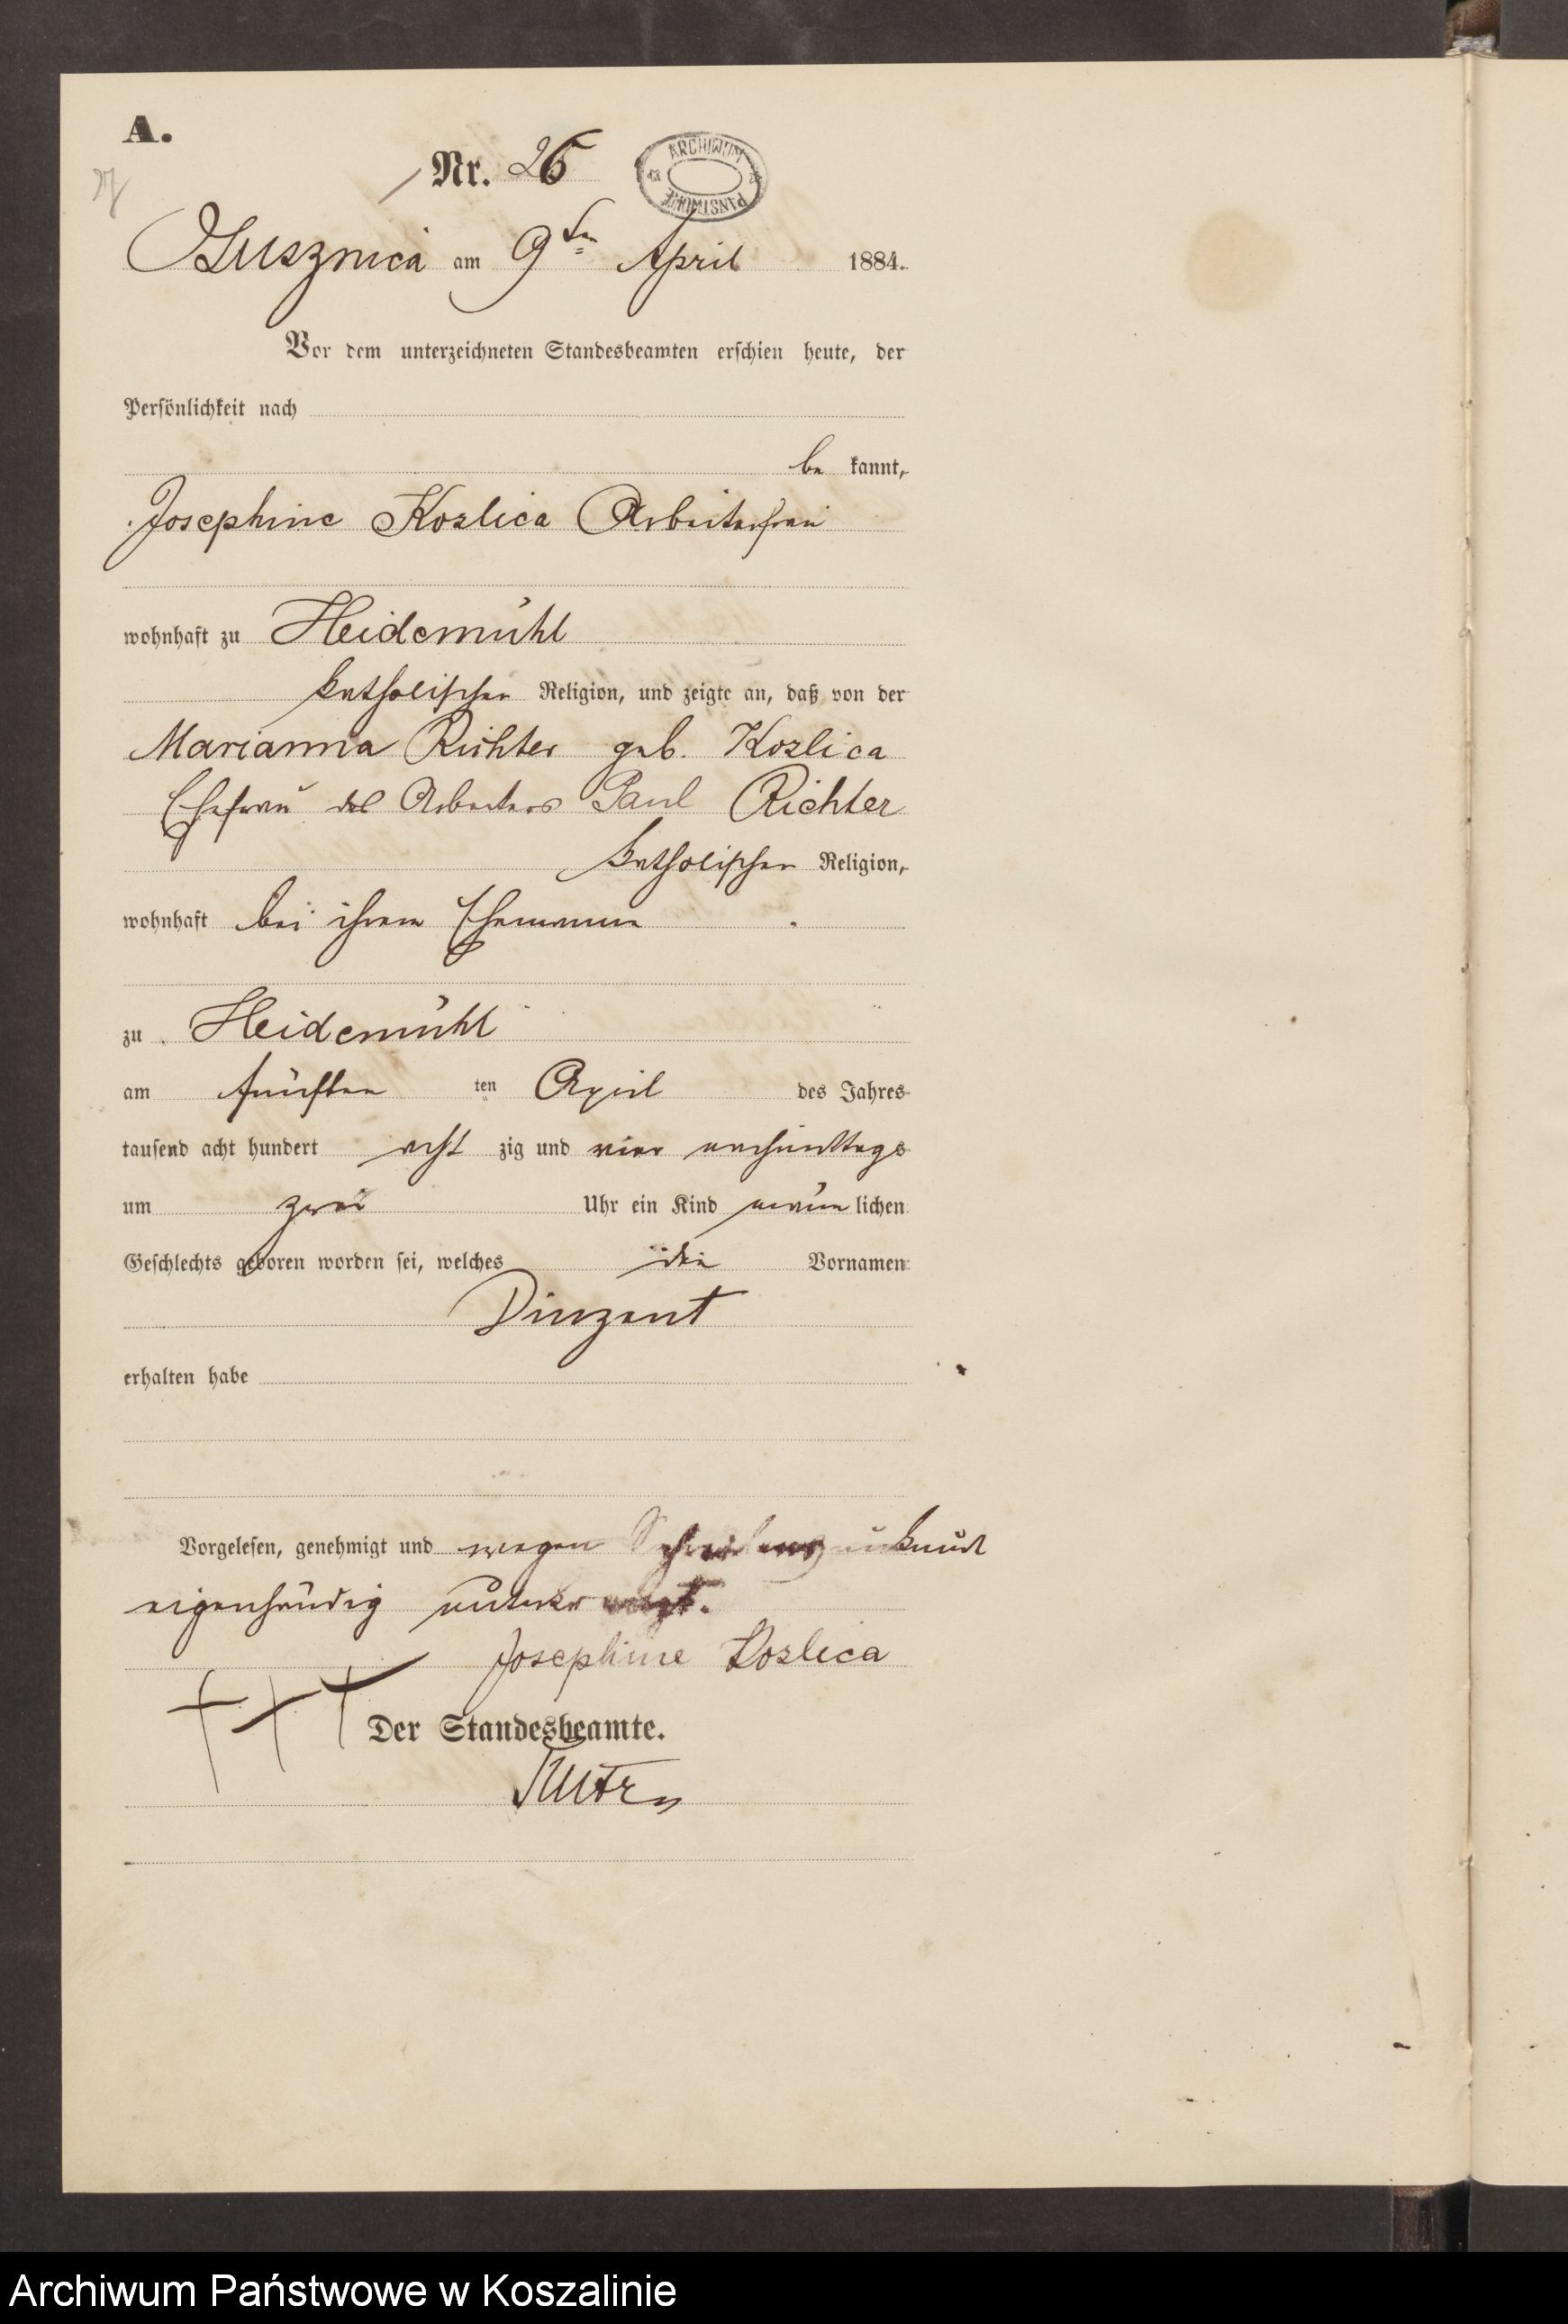 A.
Nr. 26
ARCHIWUM PAŃSTWOWE
am 9ten April 1884.
Vor dem unterzeichneten Standesbeamten erschien heute, der
Persönlichkeit nach
be kannt,
Josephine Kozlica Arbeiterfrau
wohnhaft zu Heidemühl
katholischer Religion, und zeigte an, daß von der
Marianna Richter geb. Kozlica
Ehefrau des Arbeiters Paul Richter
katholischer Religion,
wohnhaft bei ihrem Ehemanne
zu Heidemühl
am fünften ten April des Jahres
tausend acht hundert acht zig und vier nachmittags
um zwei Uhr ein Kind männ lichen
Geschlechts geboren worden sei, welches den Vornamen
Vinzent
erhalten habe
Vorgelesen, genehmigt und wegen
eigenhändig
Josephine Kozlica
+++
Der Standesbeamte.
Archiwum Państwowe w Koszalinie